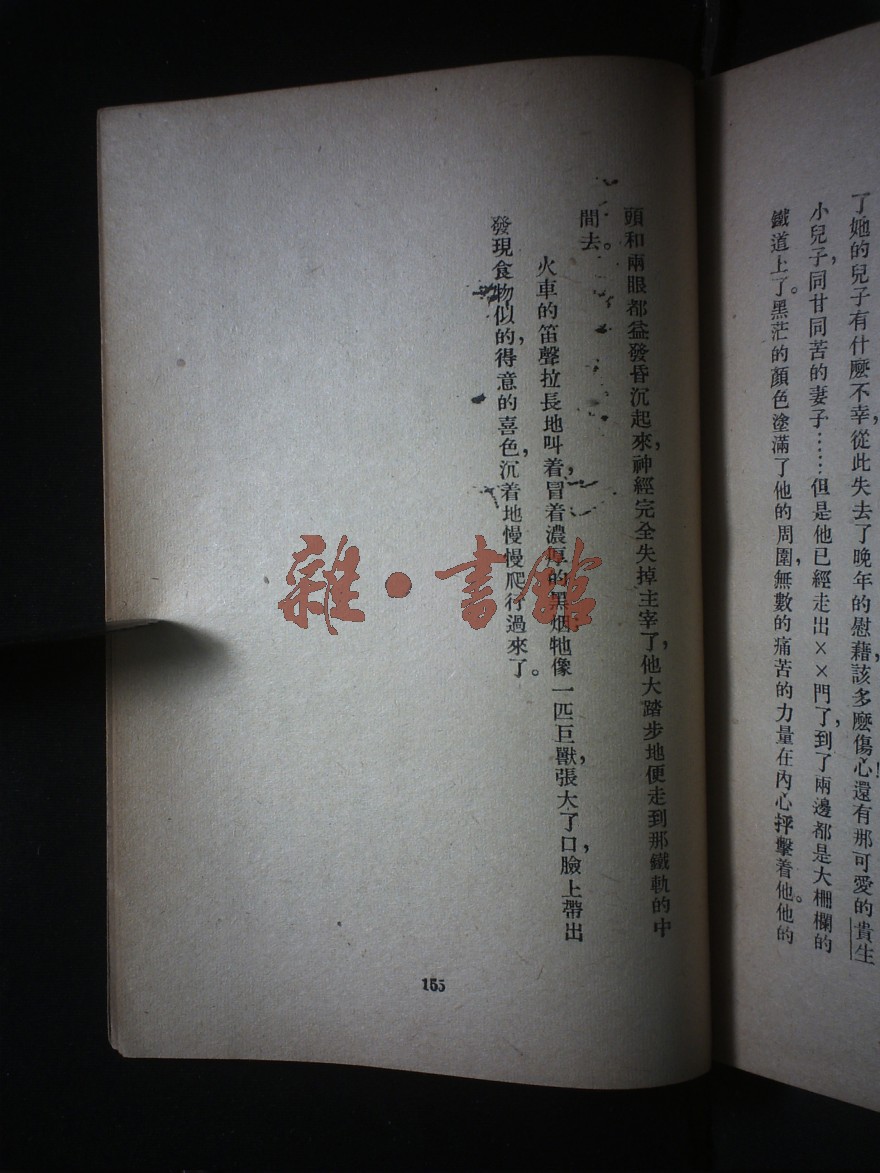 了她的兒子有什麼不幸，從此失去了晚年的慰藉，該多麼傷心！還有那可愛的貴生
小兒子，同甘同苦的妻子……但是他已經走出××門了，到了兩邊都是大柵欄的
鐵道上了。黑茫的顏色塗滿了他的周圍，無數的痛苦的力量在內心抨擊着他。他的
頭和兩眼都益發昏沉起來，神經完全失掉主宰了，他大踏步地便走到那鐵軌的中
間去。
火車的笛聲拉長地叫着，冒着濃厚的黑烟，牠像一匹巨獸，張大了口，臉上帶出
發現食物似的，得意的喜色，沉着地慢慢爬行過來了。
155
雜·書館